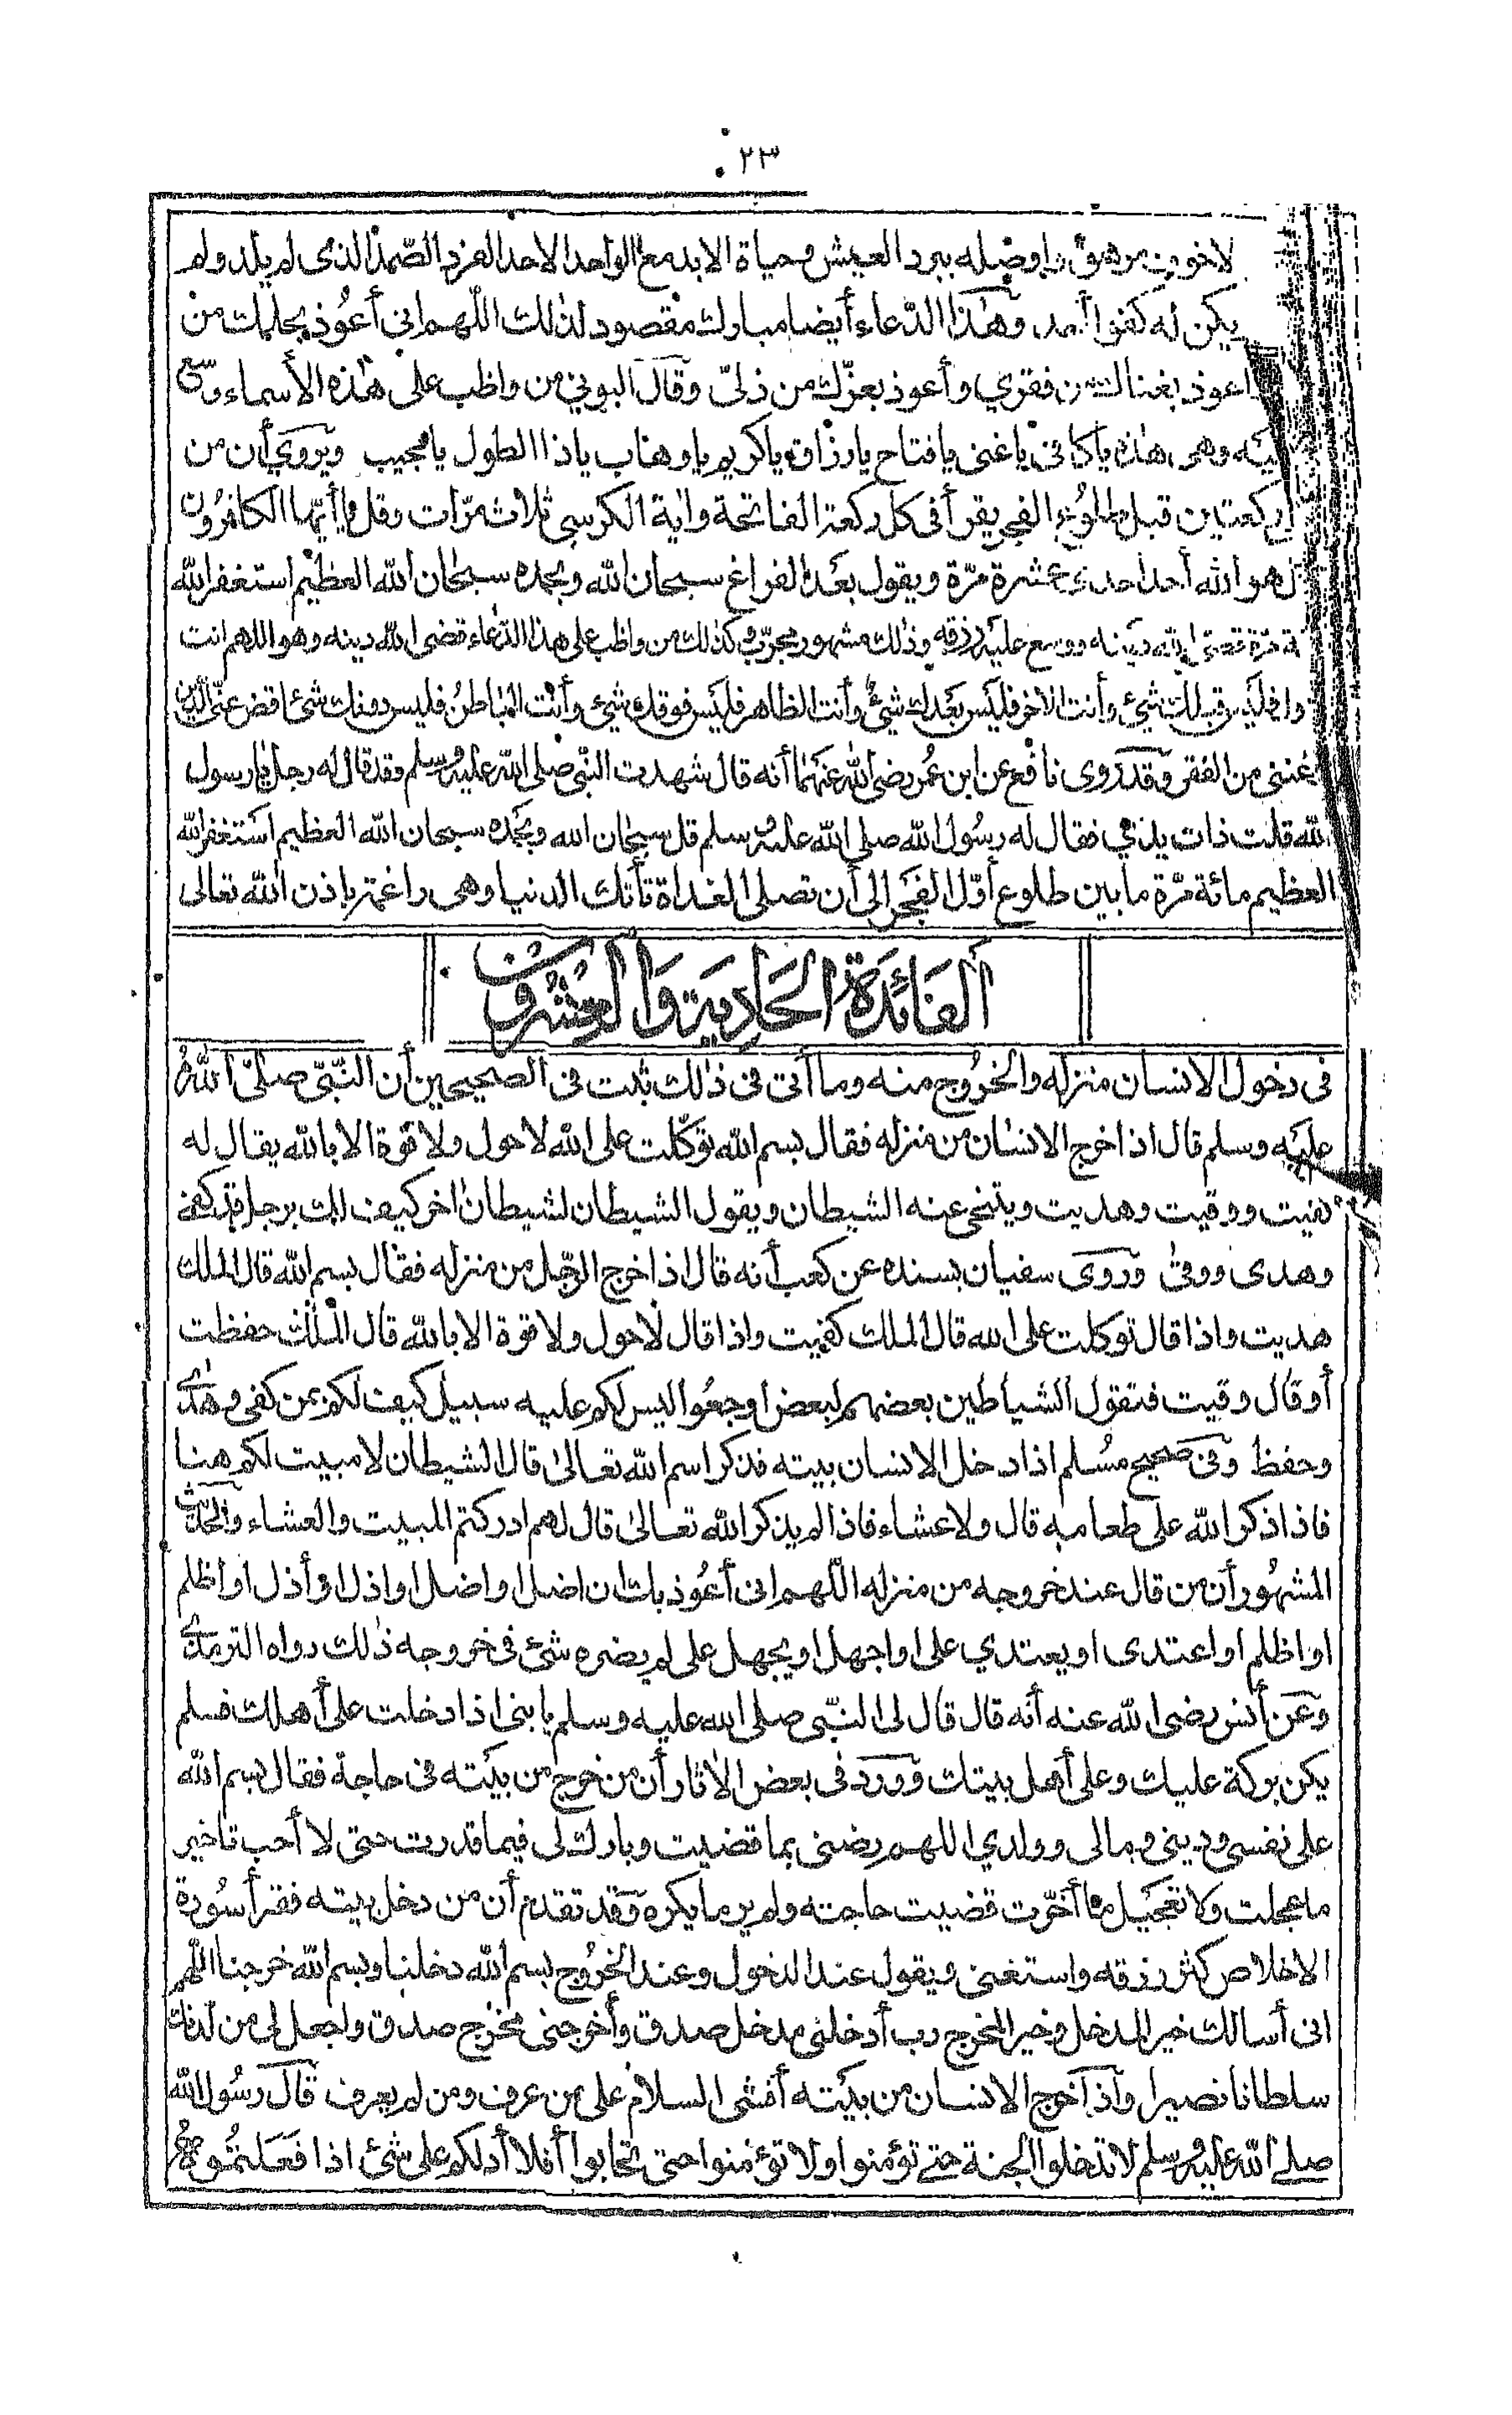 ٢٣
واوصله ببرد العيش وحياة الابد مع الواحد الاحد الفرد الصّمد الذى لم يلد ولم
يكن له كفوا وهٰذا الدّعاء أيضا مبارك مقصود لذلك اللّهم انى أعُوذ بحلمك من
اعوذ بغناك من فقري وأعوذ بعزّك من ذلىّ وقال البوني من واظب على هٰذه الأسماء وسّع
وهى هٰذه يا كافى يا غنى يا فتاح يا رزاق يا كريم يا وهاب يا ذا الطول يا مجيب ويروي أن من
ركعتين قبل الفجر يقرأ فى كل ركعة الفاتحة واٰية الكرسى ثلاث مرّات وقل يا أيّها الكافرُون
هو الله أحد عشرة مرّة ويقول بعد الفراغ سبحان الله وبحمده سبحان الله العظيم استغفر الله
مرّة دينه ووسع عليه رزقه وذٰلك مشهور مجرّب وكذلك من واظب على هذا الدّعاء قضى الله دينه وهو اللهم انت
شيء وأنت الاٰخر فليس بعدك شئٌ وأنت الظاهر فليس فوقك شيء وأنت الباطنُ فليس دونك شئ اقض عنّى الدّين
من الفقر وقد روى نافع عن ابن عمُر رضى الله عنهمُا أنه قال شهدت النّبى صلى الله عليه وسلم وقد قال له رجل يا رسول
الله قلت ذات يدي فقال له رسُول الله صلى الله عليه وسلم قل سبحان الله وبحمده سبحان الله العظيم استغفر الله
العظيم مائة مرّة ما بين طلوع أوّل الفجر الى أن تصلى الغداة تأتك الدنيا وهى راغمة باذن الله تعالى
اَلفَائِدَةُ الحَادِيَة وَالعِشرُون
فى دخول الانسان منزله والخرُوج منه وما أتى فى ذٰلك ثبت فى الصحيحين أن النّبىّ صلىّ اللهُ
عليه وسلم قال اذا خرج الانسان من منزله فقال بسم الله توكّلت على الله لا حول ولا قوة الا بالله يقال له
كفيت ووقيت وهديت ويتنحى عنه الشيطان ويقول الشيطان لشيطان اٰخر كيف لك برجل قد كفى
وهدى ووقى وروى سفيان بسنده عن كعب أنه قال اذا خرج الرّجل من منزله فقال بسم الله قال الملك
هديت واذا قال توكلت على الله قال الملك كفيت واذا قال لا حول ولا قوة الا بالله قال الملك حفظت
أو قال وقيت فتقول الشياطين بعضهم لبعض ارجعُوا ليس لكم عليه سبيل كيف لكم بمن كفى وهدى
وحفظ وفى صحيح مسُلم اذا دخل الانسان بيته فذكر اسم الله تعالىٰ قال الشيطان لا مبيت لكم هنا
فاذا ذكر الله على طعامه قال ولا عشاء فاذا لم يذكر الله تعالىٰ قال لهم ادركتم المبيت والعشاء والحديث
المشهُور أن من قال عند خروجه من منزله اللّهم انى أعُوذ بك ان اضل او اضل او اذل او أذل او اظلم
او اظلم او اعتدى او يعتدي على او اجهل او يجهل على لم يضره شئ فى خروجه ذٰلك رواه الترمذى
وعن أنس رضى الله عنه أنه قال قال لى النّبى صلى الله عليه وسلم يا بنى اذا دخلت على أهلك فسلم
يكن بركة عليك وعلى أهل بيتك وورد فى بعض الاٰثار أن من خرج من بيته فى حاجة فقال بسم الله
على نفسى ودينى ومالى وولدي اللهم رضنى بما قضيت وبارك لى فيما قدرت حتى لا أحب تاخير
ما عجلت ولا تعجيل ما أخّرت قضيت حاجته ولم ير ما يكره وقد تقدم أن من دخل بيته فقرأ سُورة
الاخلاص كثر رزقه واستغنى ويقول عند الدخول وعند الخرُوج بسم الله دخلنا وبسم الله خرجنا اللهم
انى أسالك خير المدخل وخير المخرج رب أدخلنى مدخل صدق وأخرجنى مخرج صدق واجعل لى من لدنك
سلطانا نصيرا واذا خرج الانسان من بيته أفشى السلام على من عرف ومن لم يعرف قال رسُول الله
صلى الله عليه وسلم لا تدخلوا الجنة حتى تؤمنوا ولا تؤمنوا حتى تحابوا أفلا أدلكم على شئ اذا فَعَلتمُوهُ